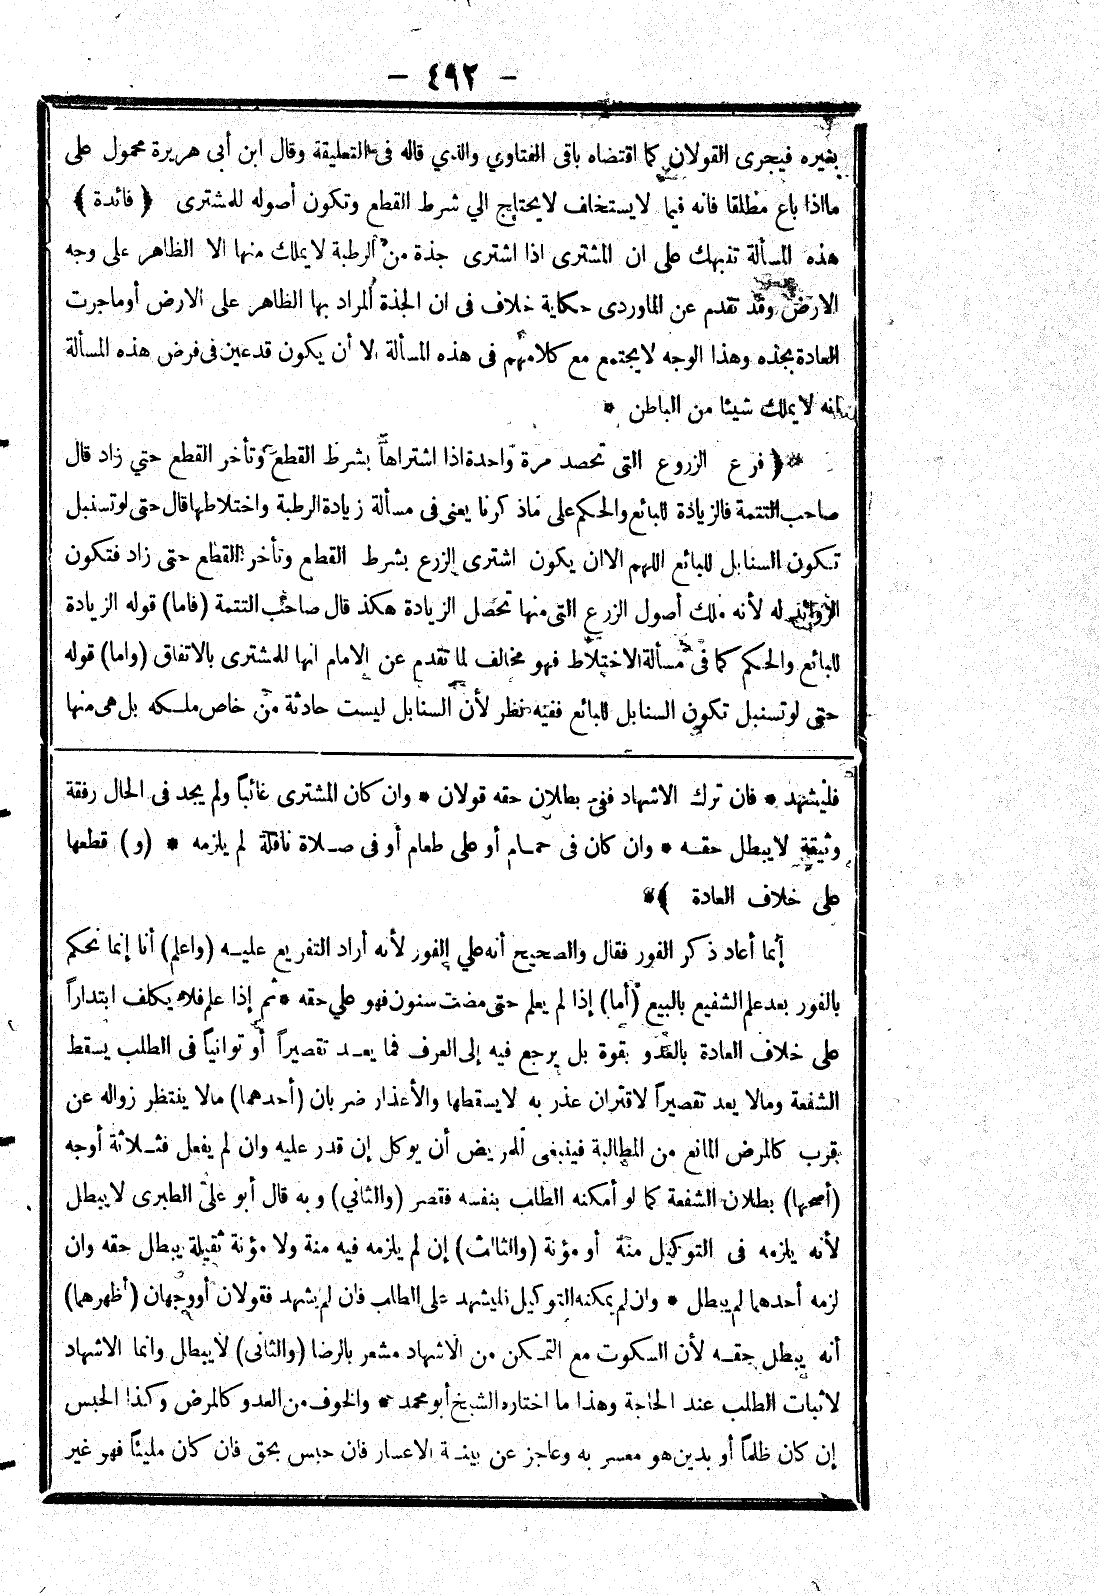 — ٤٩٢ —
بغيره فيجرى القولان كما اقتضاه باقى الفتاوي والذي قاله فى التعليقة وقال ابن أبى هريرة محمول على
مااذا باع مطلقا فانه فيما لا يستخلف لا يحتاج الي شرط القطع وتكون أصوله للمشترى ﴿ فائدة ﴾
هذه المسألة تنبهك على ان المشترى اذا اشترى جذة من الرطبة لا يملك منها الا الظاهر على وجه
الارض وقد تقدم عن الماوردى حكاية خلاف فى ان الجذة المراد بها الظاهر على الارض أوماجرت
العادة بجذه وهذا الوجه لا يجتمع مع كلامهم فى هذه المسألة الا أن يكون قدعين فى فرض هذه المسألة
انه لا يملك شيئا من الباطن *
*﴿ فرع الزروع التى تحصد مرة واحدة اذا اشتراها بشرط القطع وتأخر القطع حتي زاد قال
صاحب التتمة فالزيادة للبائع والحكم على ماذ كرنا يعنى فى مسألة زيادة الرطبة واختلاطها قال حتى لو تسنبل
تكون السنابل للبائع اللهم الا ان يكون اشترى الزرع بشرط القطع وتأخر القطع حتى زاد فتكون
الزوائد له لأنه ملك أصول الزرع التى منها تحصل الزيادة هكذ قال صاحب التتمة (فاما) قوله الزيادة
للبائع والحكم كما فى مسألة الاختلاط فهو مخالف لما تقدم عن الامام انها للمشترى بالاتفاق (واما) قوله
حتى لو تسنبل تكون السنابل للبائع ففيه نظر لأن السنابل ليست حادثة من خاص ملكه بل هى منها
فليشهد * فان ترك الاشهاد ففى بطلان حقه قولان * وان كان المشترى غائباً ولم يجد فى الحال رفقة
وثيقة لا يبطل حقه * وان كان فى حمام أو على طعام أو فى صلاة نافلة لم يلزمه * (و) قطعها
على خلاف العادة ﴾*
إنما أعاد ذكر الفور فقال والصحيح أنه علي الفور لأنه أراد التفريع عليه (واعلم) أنا إنما نحكم
بالفور بعد علم الشفيع بالبيع (أما) إذا لم يعلم حتى مضت سنون فهو علي حقه * ثم إذا علم فلا يكلف ابتداراً
على خلاف العادة بالعدو بقوة بل يرجع فيه إلى العرف فما يعد تقصيراً أو توانياً فى الطلب يسقط
الشفعة ومالا يعد تقصيراً لاقتران عذر به لا يسقطها والأعذار ضربان (أحدهما) مالا ينتظر زواله عن
قرب كالمرض المانع من المطالبة فينبغى للمريض أن يوكل إن قدر عليه وان لم يفعل فثلاثة أوجه
(أصحها) بطلان الشفعة كما لو أمكنه الطلب بنفسه فقصر (والثاني) وبه قال أبو على الطبرى لا يبطل
لأنه يلزمه فى التوكيل منة أو مؤنة (والثالث) إن لم يلزمه فيه منة ولا مؤنة ثقيلة يبطل حقه وان
لزمه أحدهما لم يبطل * وان لم يمكنه التوكيل فليشهد على الطلب فان لم يشهد فقولان أو وجهان (أظهرهما)
أنه يبطل حقه لأن السكوت مع التمكن من الاشهاد مشعر بالرضا (والثانى) لا يبطل وانما الاشهاد
لاثبات الطلب عند الحاجة وهذا ما اختاره الشيخ أبو محمد * والخوف من العدو كالمرض وكذا الحبس
إن كان ظلماً أو بدين هو معسر به وعاجز عن بينة الاعسار فان حبس بحق فان كان مليئاً فهو غير